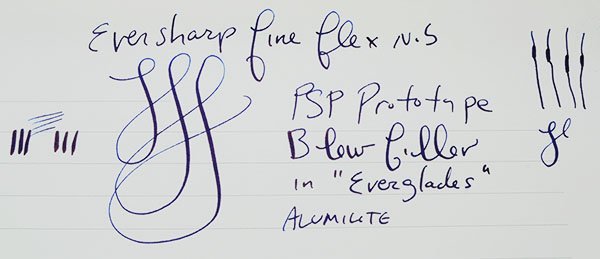 Eversharp fine flex nib
PSP Prototype
Blow filler
in "Everglades"
ALUMILITE